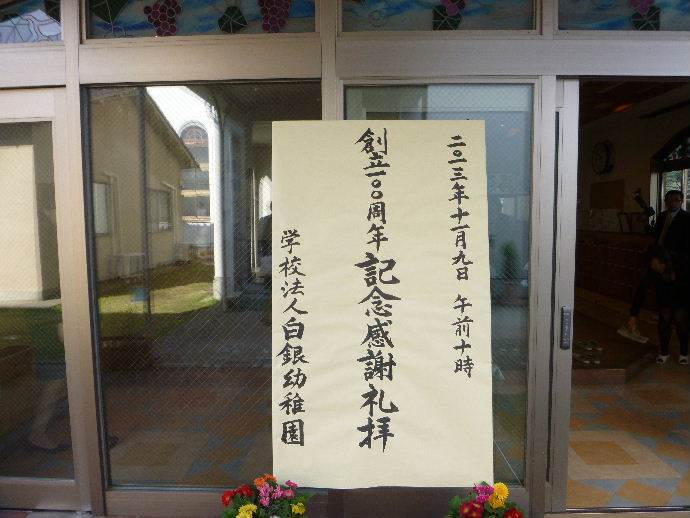 二〇一三年十一月九日 午前十時
創立一〇〇周年 記念感謝礼拝
学校法人白銀幼稚園